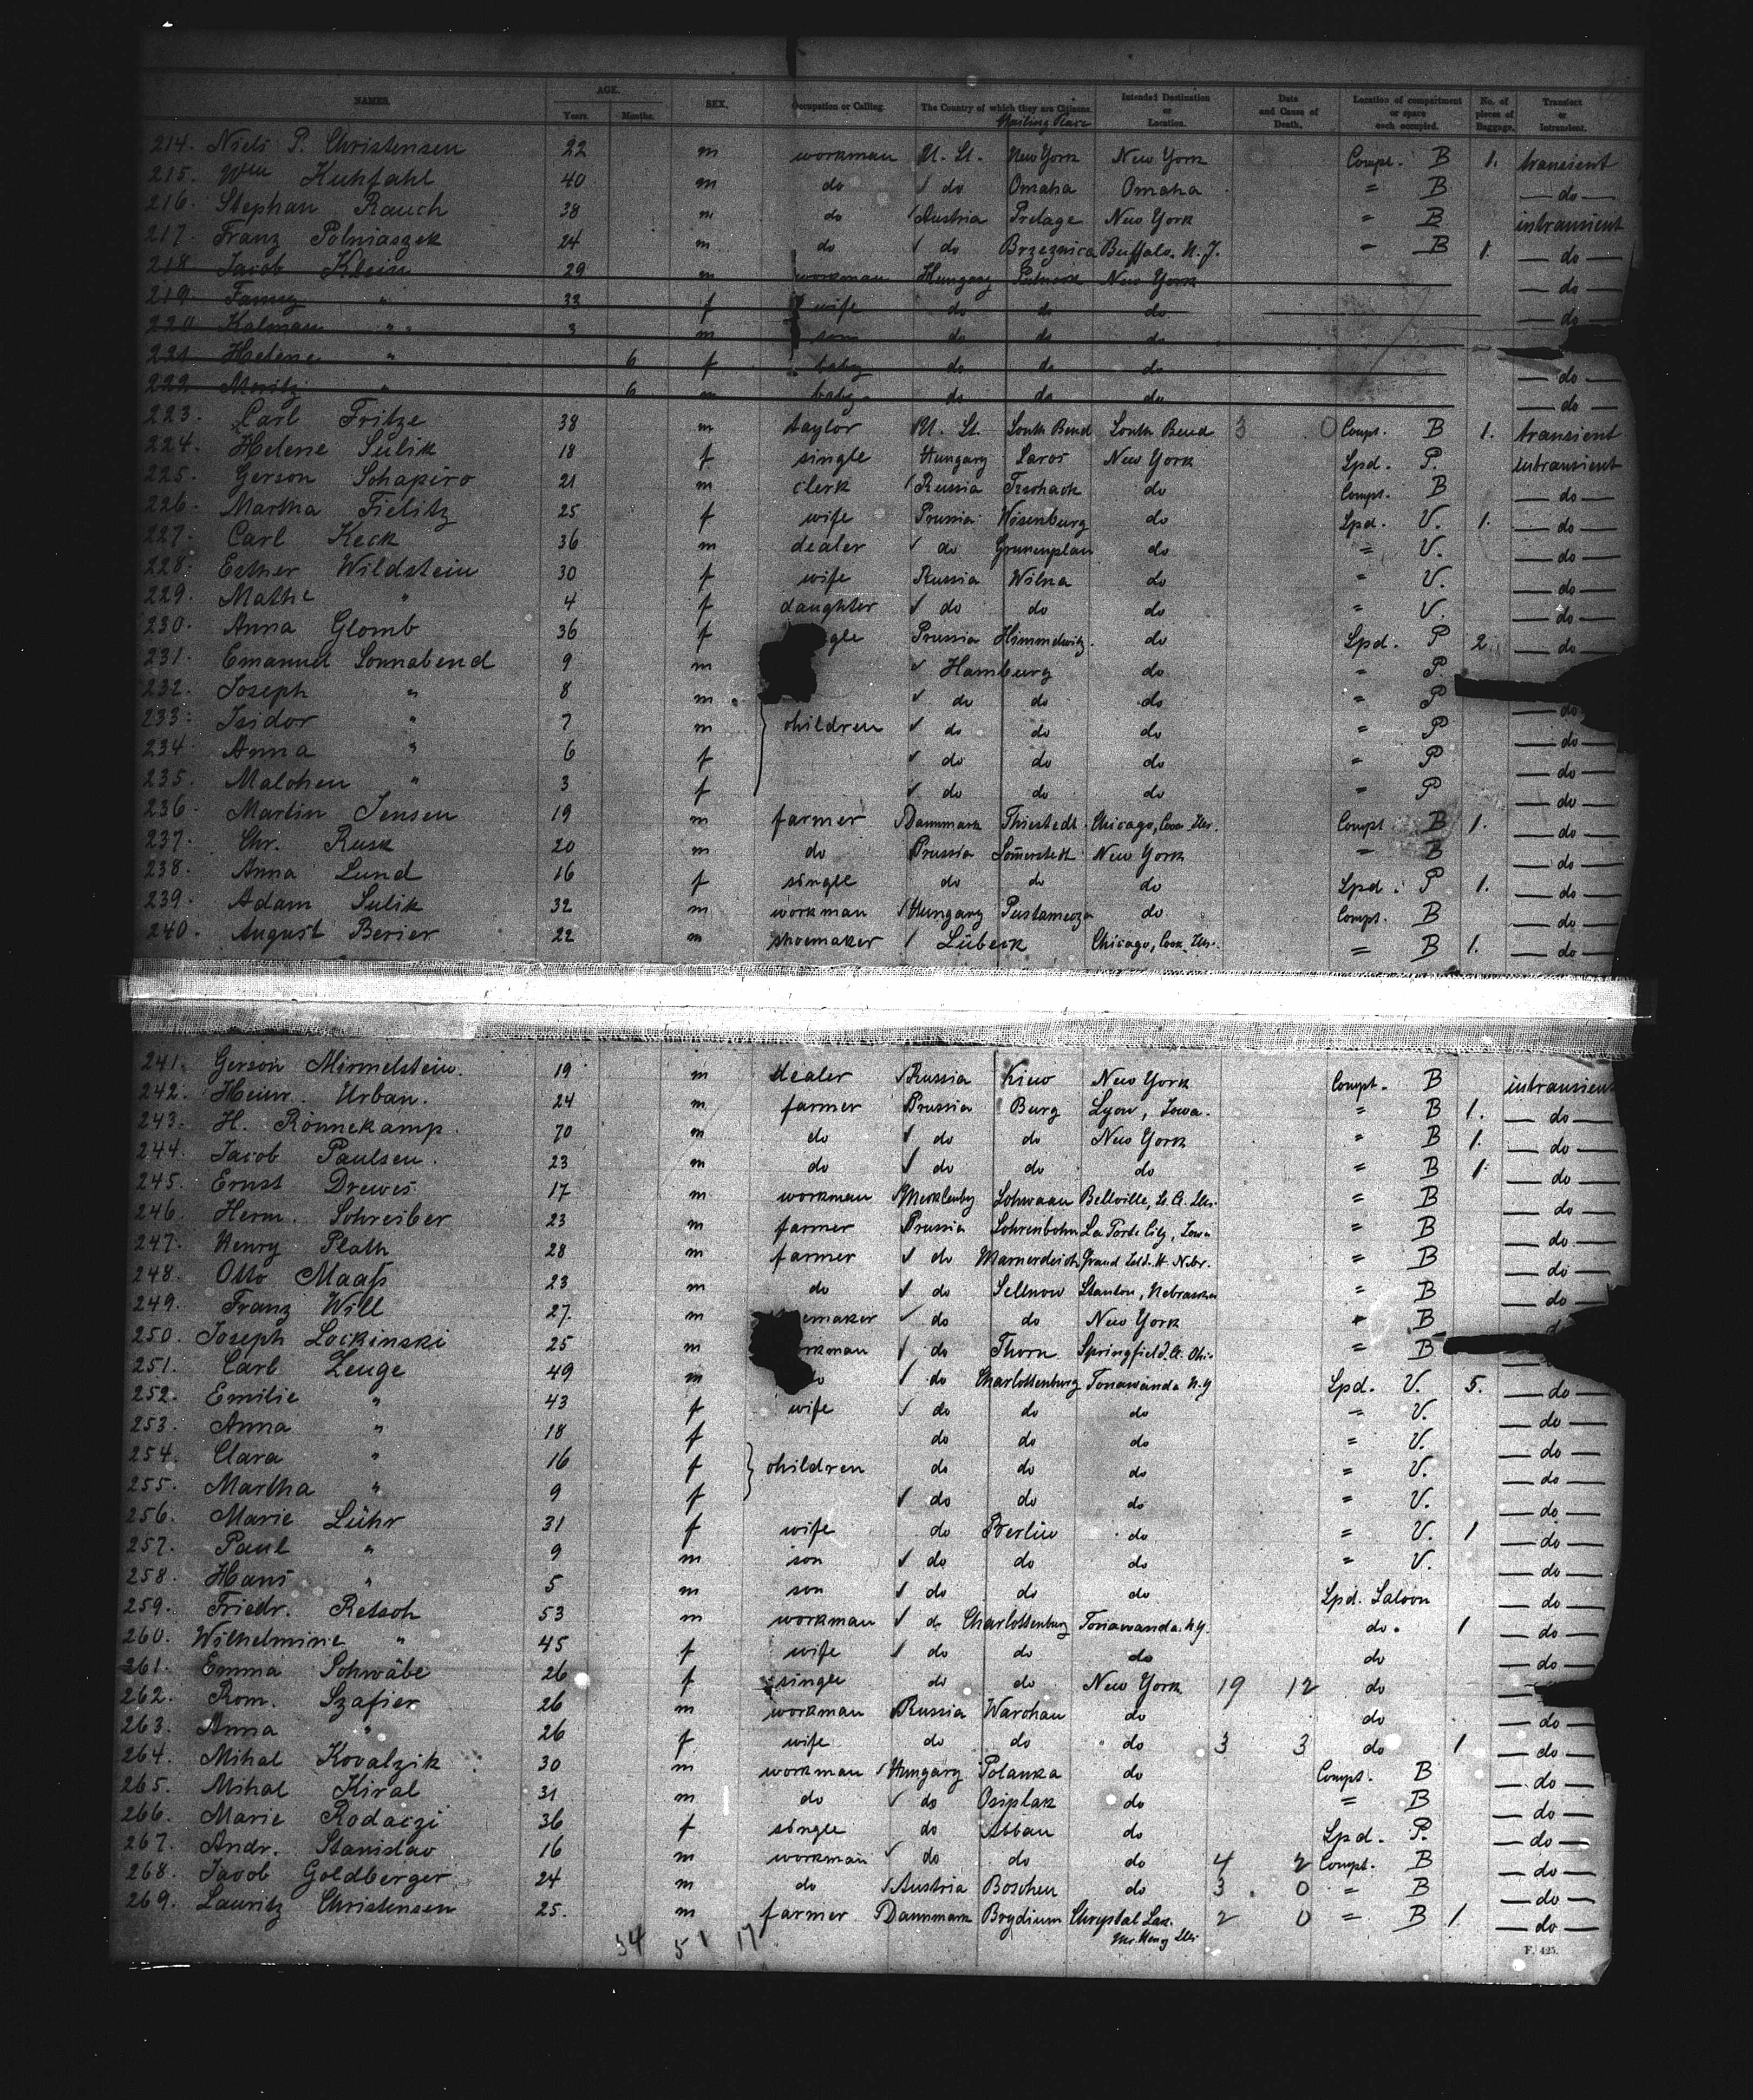 NAMES. AGE. Years. Months. SEX. Occupation or Calling. The Country of which they are Citizens. Mailing Place Intended Destination or Location. Date and Cause of Death. Location of compartment or space each occupied. No. of pieces of Baggage. Transient or Intransient.
214. Niels P. Christensen 22 m workman U. St. New York New York Compt. B 1. transient
215. Wm Kuhfahl 40 m do do Omaha Omaha " B do
216. Stephan Rauch 38 m do Austria Prelage New York " B intransient
217. Franz Polniaszek 24 m do do Brzeznica Buffalo, N.Y. " B 1. do
218. Jacob Klein 29 m workman Hungary New York do
219. Fanny " 33 f wife do do do do
220. Kalman " 3 m son do do do
221. Helene " 6 f baby do do do do
222. Moritz " 6 m baby do do do do
223. Carl Fritze 38 m taylor U. St. South Bend South Bend 3 0 Compt. B 1. transient
224. Helene Sulik 18 f single Hungary Saros New York Spd. P. intransient
225. Gerson Schapiro 21 m clerk Russia do Compt. B do
226. Martha Fielitz 25 f wife Prussia Wosenburg do Spd. V. 1. do
227. Carl Keck 36 m dealer do Grunenplan do " V. do
228. Esther Wildstein 30 f wife Russia Wilna do " V. do
229. Mathe " 4 f daughter do do do " V. do
230. Anna Glomb 36 f gle Prussia Himmelwitz do Spd. P 2. do
231. Emanuel Sonnabend 9 m Hamburg do " P.
232. Joseph " 8 m do do do " P do
233. Isidor " 7 m children do do do " P do
234. Anna " 6 f do do do " P do
235. Malchen " 3 f do do do " P do
236. Martin Jensen 19 m farmer Dannmark Thiestedt Chicago, Cook Ills. Compt B 1. do
237. Chr. Rusk 20 m do Prussia Somerstedt New York " B do
238. Anna Lund 16 f single do do do Spd. P 1. do
239. Adam Sulik 32 m workman Hungary Pustamezo do Compt. B do
240. August Berier 22 m shoemaker Lübeck Chicago, Cook Ills. " B 1. do
241. Gerson Mirmelstein. 19 m dealer Russia Kiew New York Compt. B intransient
242. Heinr. Urban. 24 m farmer Prussia Burg Lyon, Iowa. " B 1. do
243. H. Rönnekamp. 70 m do do do New York " B 1. do
244. Jacob Paulsen. 23 m do do do do " B 1. do
245. Ernst Drewes 17 m workman Mecklenbg Schwaan Bellville, St. Cl. Ills. " B do
246. Herm. Schreiber 23 m farmer Prussia Schrenbohm La Porte City, Iowa " B do
247. Henry Plath 28 m farmer do Marnerdeich Grand Isld. H. Nebr. " B do
248. Otto Maaß 23 m do do Sellnow Stanton, Nebraska " B do
249. Franz Will 27. m emaker do do New York " B do
250. Joseph Lockinski 25 m rkman do Thorn Springfield, Cl. Ohio " B
251. Carl Zeuge 49 m do do Charlottenburg Tonawanda N.Y Spd. V. 5. do
252. Emilie " 43 f wife do do do " V. do
253. Anna " 18 f do do do " V. do
254. Clara " 16 f children do do do " V. do
255. Martha " 9 f do do do " V. do
256. Marie Lühr 31 f wife do Berlin do " V. 1 do
257. Paul " 9 m son do do do " V. do
258. Hans " 5 m son do do do Spd. Saloon do
259. Friedr. Retsch 53 m workman do Charlottenburg Tonawanda N.Y. do. 1 do
260. Wilhelmine " 45 f wife do do do do do
261. Emma Schwäbe 26 f single do do New York 19 12 do
262. Rom. Szafier 26 m workman Russia Warchau do do do
263. Anna " 26 f wife do do do 3 3 do 1 do
264. Mihal Kovalzik 30 m workman Hungary Polanka do Compt. B do
265. Mihal Kiral 31 m do do Osiplak do " B do
266. Marie Rodaczi 36 f single do Abbau do Spd. P. do
267. Andr. Stanislav 16 m workman do do do 4 2 Compt. B do
268. Jacob Goldberger 24 m do Austria Boschen do 3 0 " B do
269. Lauritz Christensen 25. m farmer Dannmark Brydium Chrystal Lak. 2 0 " B 1 do
Mc. Heny Ills
34 51 17
F. 425.